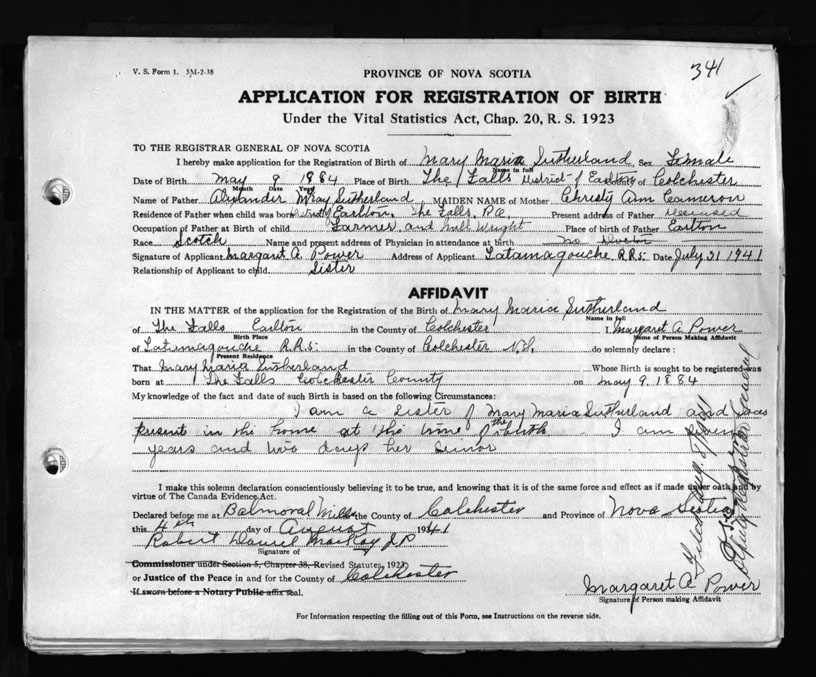 V. S. Form 1. 5M-2-38
341
PROVINCE OF NOVA SCOTIA
APPLICATION FOR REGISTRATION OF BIRTH
Under the Vital Statistics Act, Chap. 20, R. S. 1923
TO THE REGISTRAR GENERAL OF NOVA SCOTIA
I hereby make application for the Registration of Birth of Mary Maria Sutherland Sex Female
Name in full
Date of Birth May 9 1884 Place of Birth The Falls District of Earltown County of Colchester
Month Date Year
Name of Father Alexander McKay Sutherland MAIDEN NAME of Mother Christy Ann Cameron
Residence of Father when child was born Earlton, The Falls, P.O. Present address of Father deceased
Occupation of Father at Birth of child Farmer and Mill Wright Place of Birth of Father Earlton
Race Scotch Name and present address of Physician in attendance at birth no Doctor
Signature of Applicant Margaret A. Power Address of Applicant Tatamagouche R.R.5. Date July 31 1941
Relationship of Applicant to child Sister
AFFIDAVIT
IN THE MATTER of the application for the Registration of the Birth of Mary Maria Sutherland
Name in full
of The Falls Earlton in the County of Colchester I, Margaret A Power
Birth Place Name of Person making Affidavit
of Tatamagouche R.R.5. in the County of Colchester N.S. do solemnly declare:
Present Residence
That Mary Maria Sutherland Whose Birth is sought to be registered was
born at The Falls Colchester County on May 9. 1884
My knowledge of the fact and date of such Birth is based on the following Circumstances:
I am a sister of Mary Maria Sutherland and was
present in the home at the time of the birth. I am seven
years and two days her senior
I make this solemn declaration conscientiously believing it to be true, and knowing that it is of the same force and effect as if made under oath and by
virtue of The Canada Evidence Act.
Declared before me at Balmoral Mills in the County of Colchester and Province of Nova Scotia
this 4th day of August 1941
Robert Daniel MacKay J.P.
Signature of
Commissioner under Section 5, Chapter 38, Revised Statutes, 1923
or Justice of the Peace in and for the County of Colchester
If sworn before a Notary Public affix seal.
Margaret A Power
Signature of Person making Affidavit
For Information respecting the filling out of this Form, see Instructions on the reverse side.
Filed Aug. 8
Deputy Registrar General